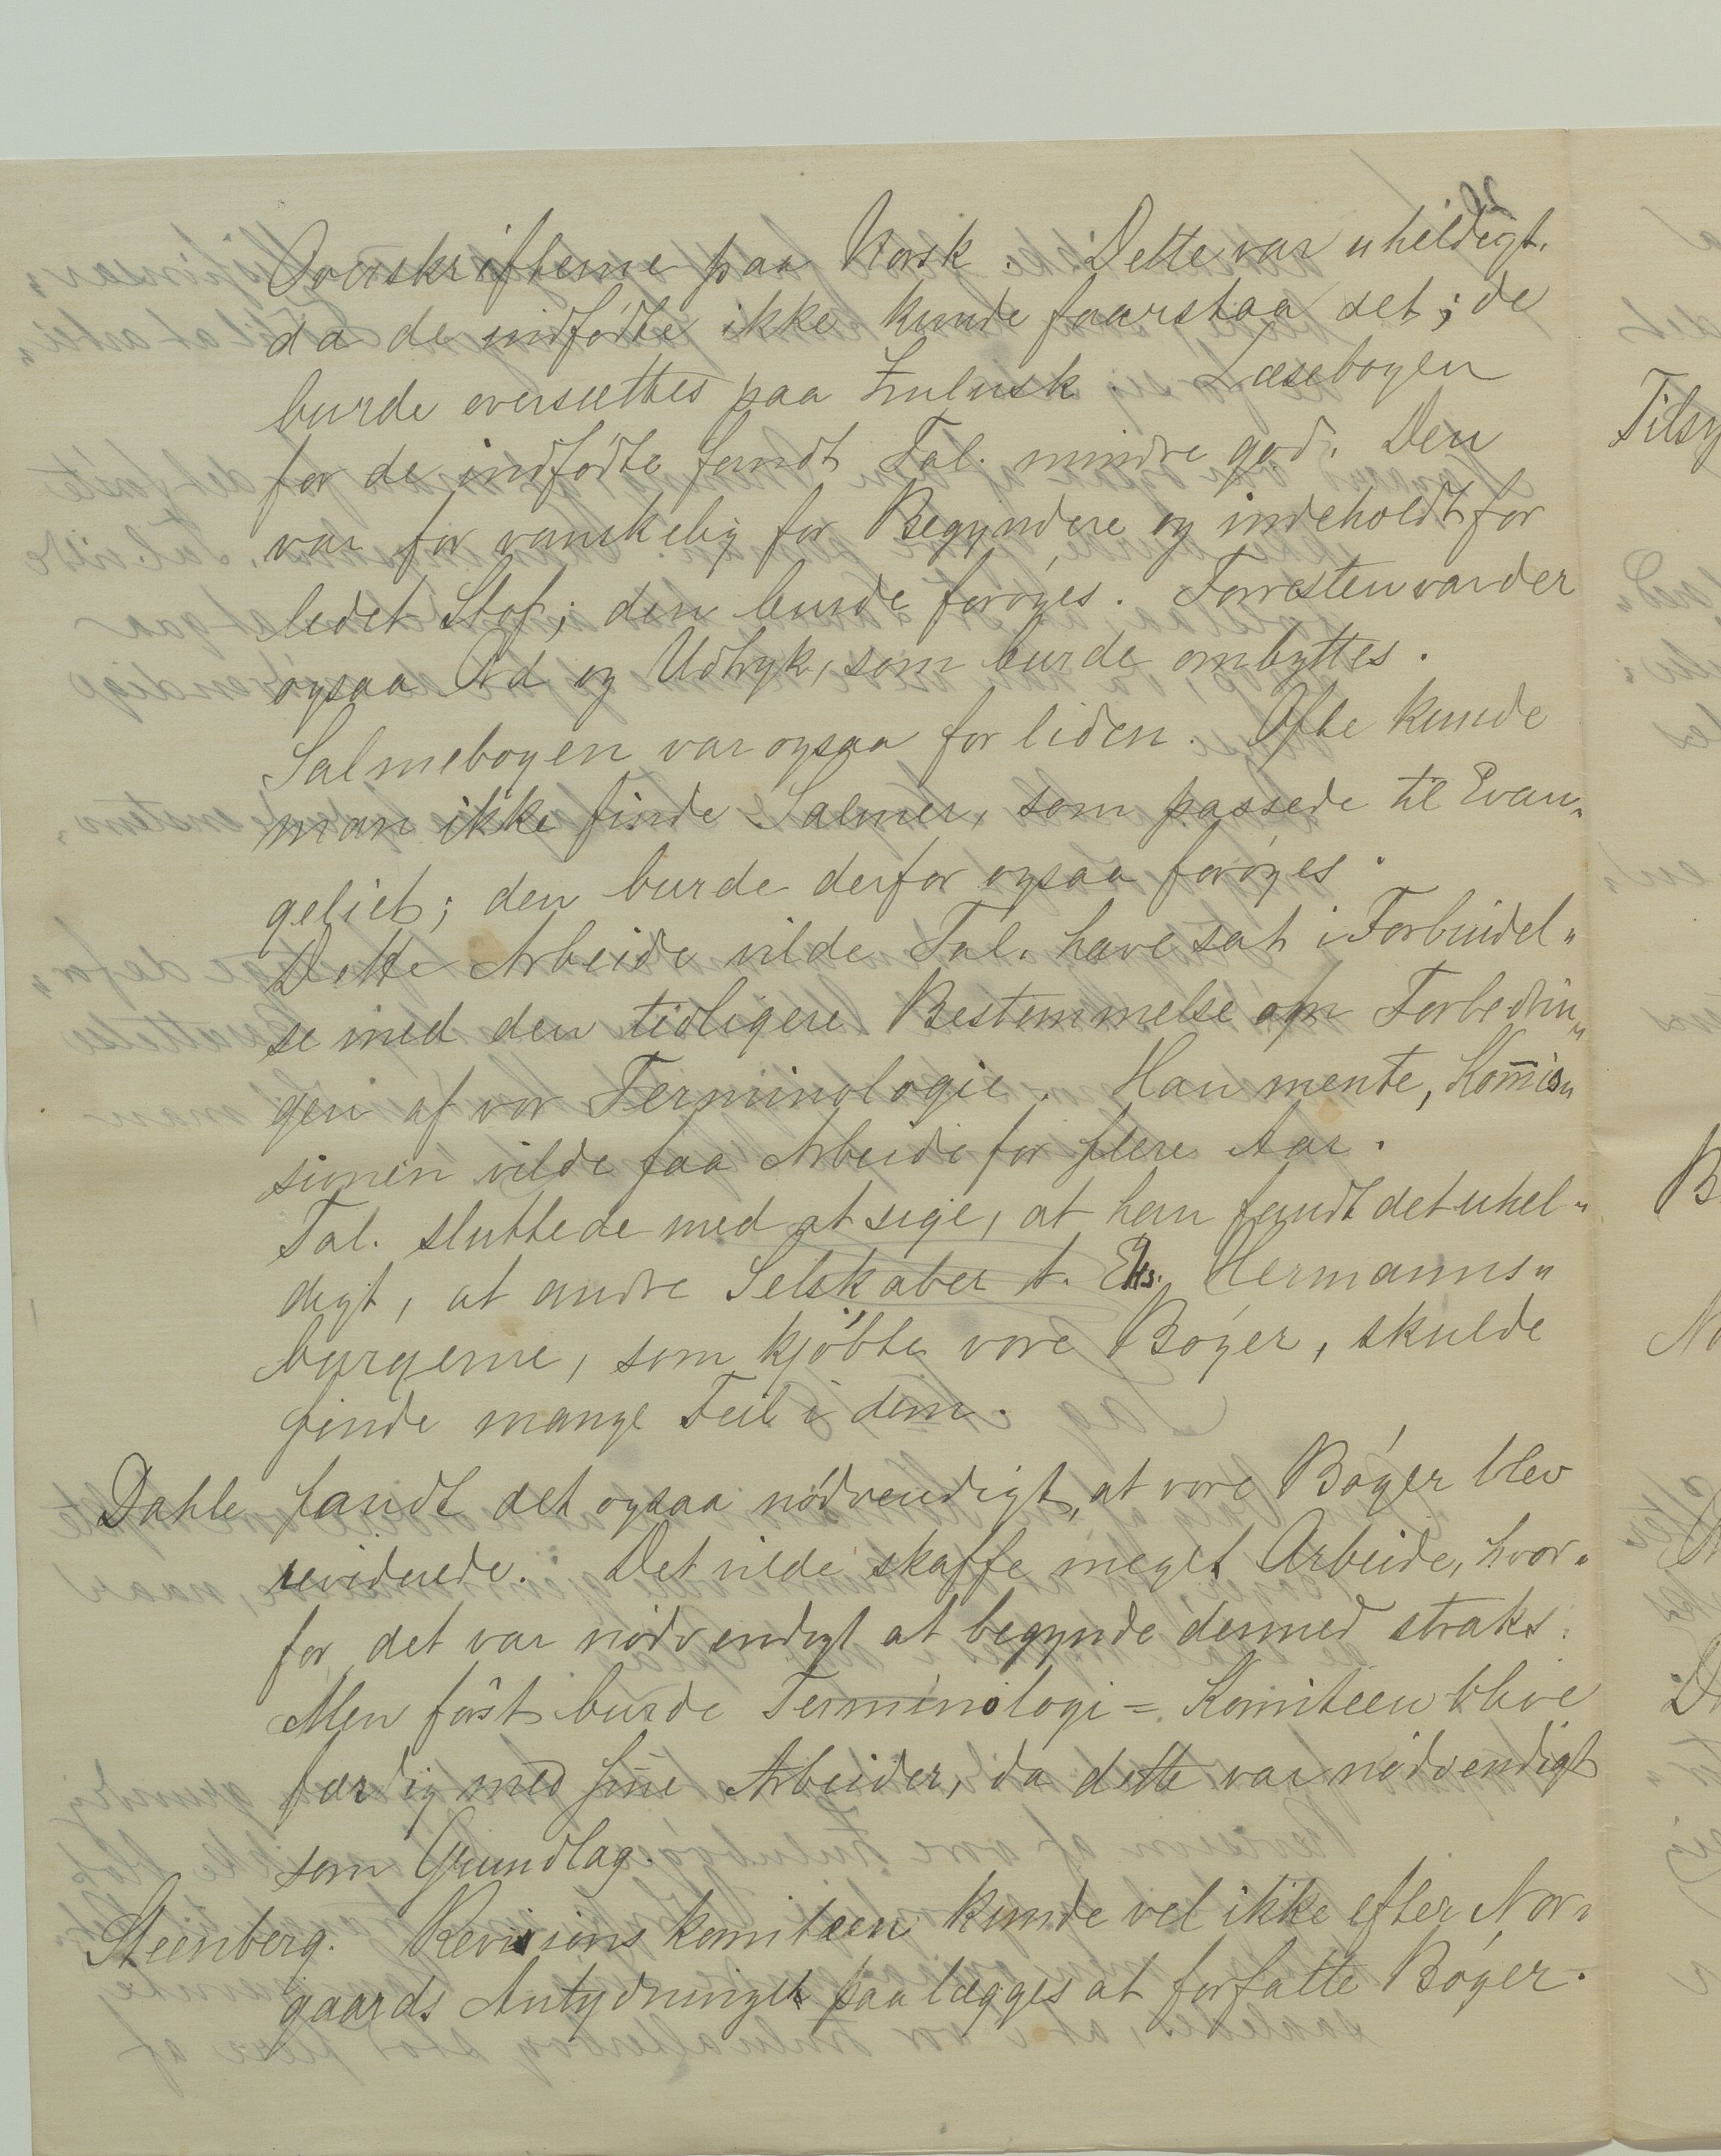 Overskrifterne paa Norsk. Dette var uheldigt.
da de indfødte ikke kunde faarstaa det; de
burde oversættes paa Zulusk. Læsebogen
for de indfødte fandt Tal. mindre god. Den
var for vanskelig for Begyndere og indeholdt for
lidet Stof; den burde forøges. Forresten var der
ogsaa Ord og Udtryk, som burde ombyttes.
Salmebogen var ogsaa for liden. Ofte kunde
man ikke finde Salmer, som passede til Evan„
geliet; den burde derfor ogsaa forøges.
Dette Arbeide vilde Tal. have sat i Forbindel„
se med den tidligere Bestemmelse om Forbedrin„
gen af vor Terminologie. Han mente, Kom̅is„
sionen vilde faa Arbeide for flere Aar.
Tal. sluttede med at sige, at han fandt det uhel„
digt, at andre Selskaber t. Eks. Hermanns„
burgerne, som kjøbte vore Bøger, skulde
finde mange Feil i dem.
Dahle fandt det ogsaa nødvendigt, at vore Bøger blev
reviderede. Det vilde skaffe meget Arbeide, hvor„
for det var nødvendigt at begynde dermed straks.
Men først burde Terminologi=Komiteen blive
færdig med sine Arbeider, da dette var nødvendigt
som Grundlag.
Steenberg. Revisionskomiteen kunde vel ikke efter Nor„
gaards Antydninger paalægges at forfatte Bøger.